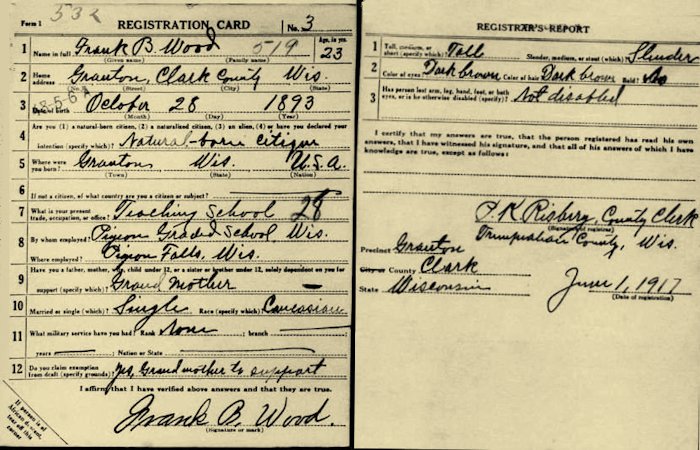 532
Form 1 REGISTRATION CARD No. 3
1 Name in full Frank B. Wood 519 Age, in yrs. 23
(Given name) (Family name)
2 Home address Granton, Clark County Wis.
(No.) (Street) (City) (State)
3 Date of birth October 28 1893
(Month) (Day) (Year)
4 Are you (1) a natural-born citizen, (2) a naturalized citizen, (3) an alien, (4) or have you declared your
intention (specify which)? Natural-born citizen
5 Where were you born? Granton Wis. U.S.A.
(Town) (State) (Nation)
6 If not a citizen, of what country are you a citizen or subject?
7 What is your present trade, occupation, or office? Teaching School 28
8 By whom employed? Pigeon Graded School, Wis.
Where employed? Pigeon Falls, Wis.
9 Have you a father, mother, wife, child under 12, or a sister or brother under 12, solely dependent on you for
support (specify which)? Grand Mother
10 Married or single (which)? Single Race (specify which)? Caucasian
11 What military service have you had? Rank None ; branch
years ; Nation or State
12 Do you claim exemption from draft (specify grounds)? Yes, Grandmother to support
I affirm that I have verified above answers and that they are true.
Frank B. Wood.
(Signature or mark)
If person is of African descent, tear off this corner
REGISTRAR'S REPORT
1 Tall, medium, or short (specify which)? Tall Slender, medium, or stout (which)? Slender
2 Color of eyes? Dark brown Color of hair? Dark brown Bald? No
3 Has person lost arm, leg, hand, foot, or both eyes, or is he otherwise disabled (specify)? Not disabled
I certify that my answers are true, that the person registered has read his own
answers, that I have witnessed his signature, and that all of his answers of which I have
knowledge are true, except as follows:
P. K. Risberg, County Clerk
(Signature of registrar)
Precinct Granton Trempealeau County, Wis.
City or County Clark
State Wisconsin June 1, 1917
(Date of registration)